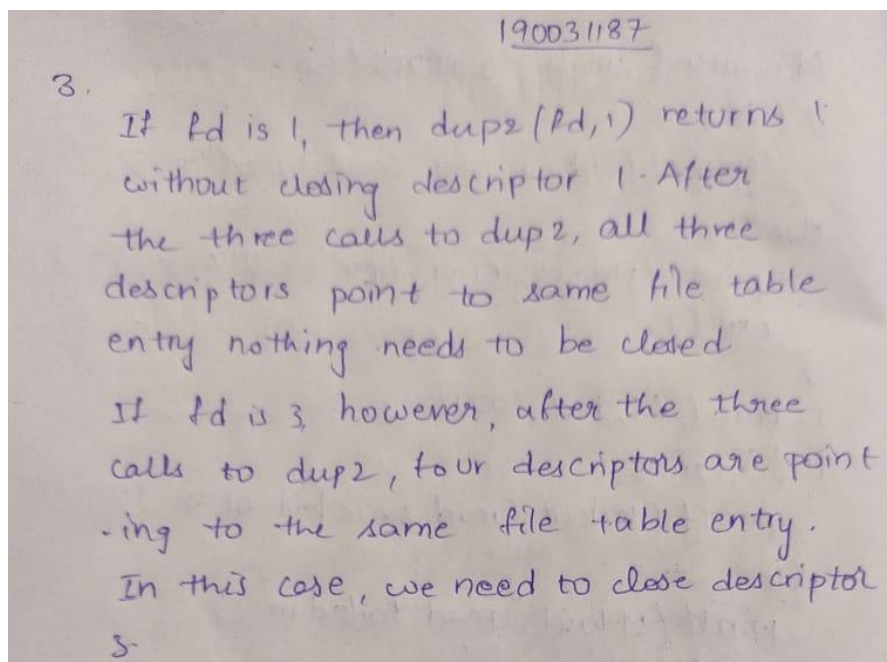 190031187
3.
If fd is 1, then dup2(fd,1) returns 1
without closing descriptor 1. After
the three calls to dup2, all three
descriptors point to same file table
entry nothing needs to be closed
If fd is 3, however, after the three
calls to dup2, four descriptors are point
-ing to the same file table entry.
In this case, we need to close descriptor
3.